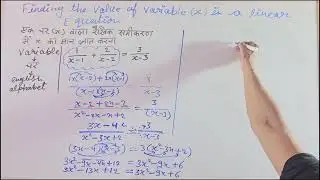 Finding the Value of Variable (x) is a linear
Equation
एक चर (x) वाला रैखिक समीकरण
में x का मान ज्ञात करना
variable
↓
चर
↓
english
alphabet
1/(x-1) + 2/(x-2) = 3/(x-3)
1(x-2)+2(x-1) / (x-1)(x-2) = 3/(x-3)
x-2+2x-2 / x²-2x-x+2 = 3/(x-3)
3x-4 / x²-3x+2 = 3/(x-3)
(3x-4)(x-3) = 3(x²-3x+2)
3x²-9x-4x+12 = 3x²-9x+6
3x²-13x+12 = 3x²-9x+6